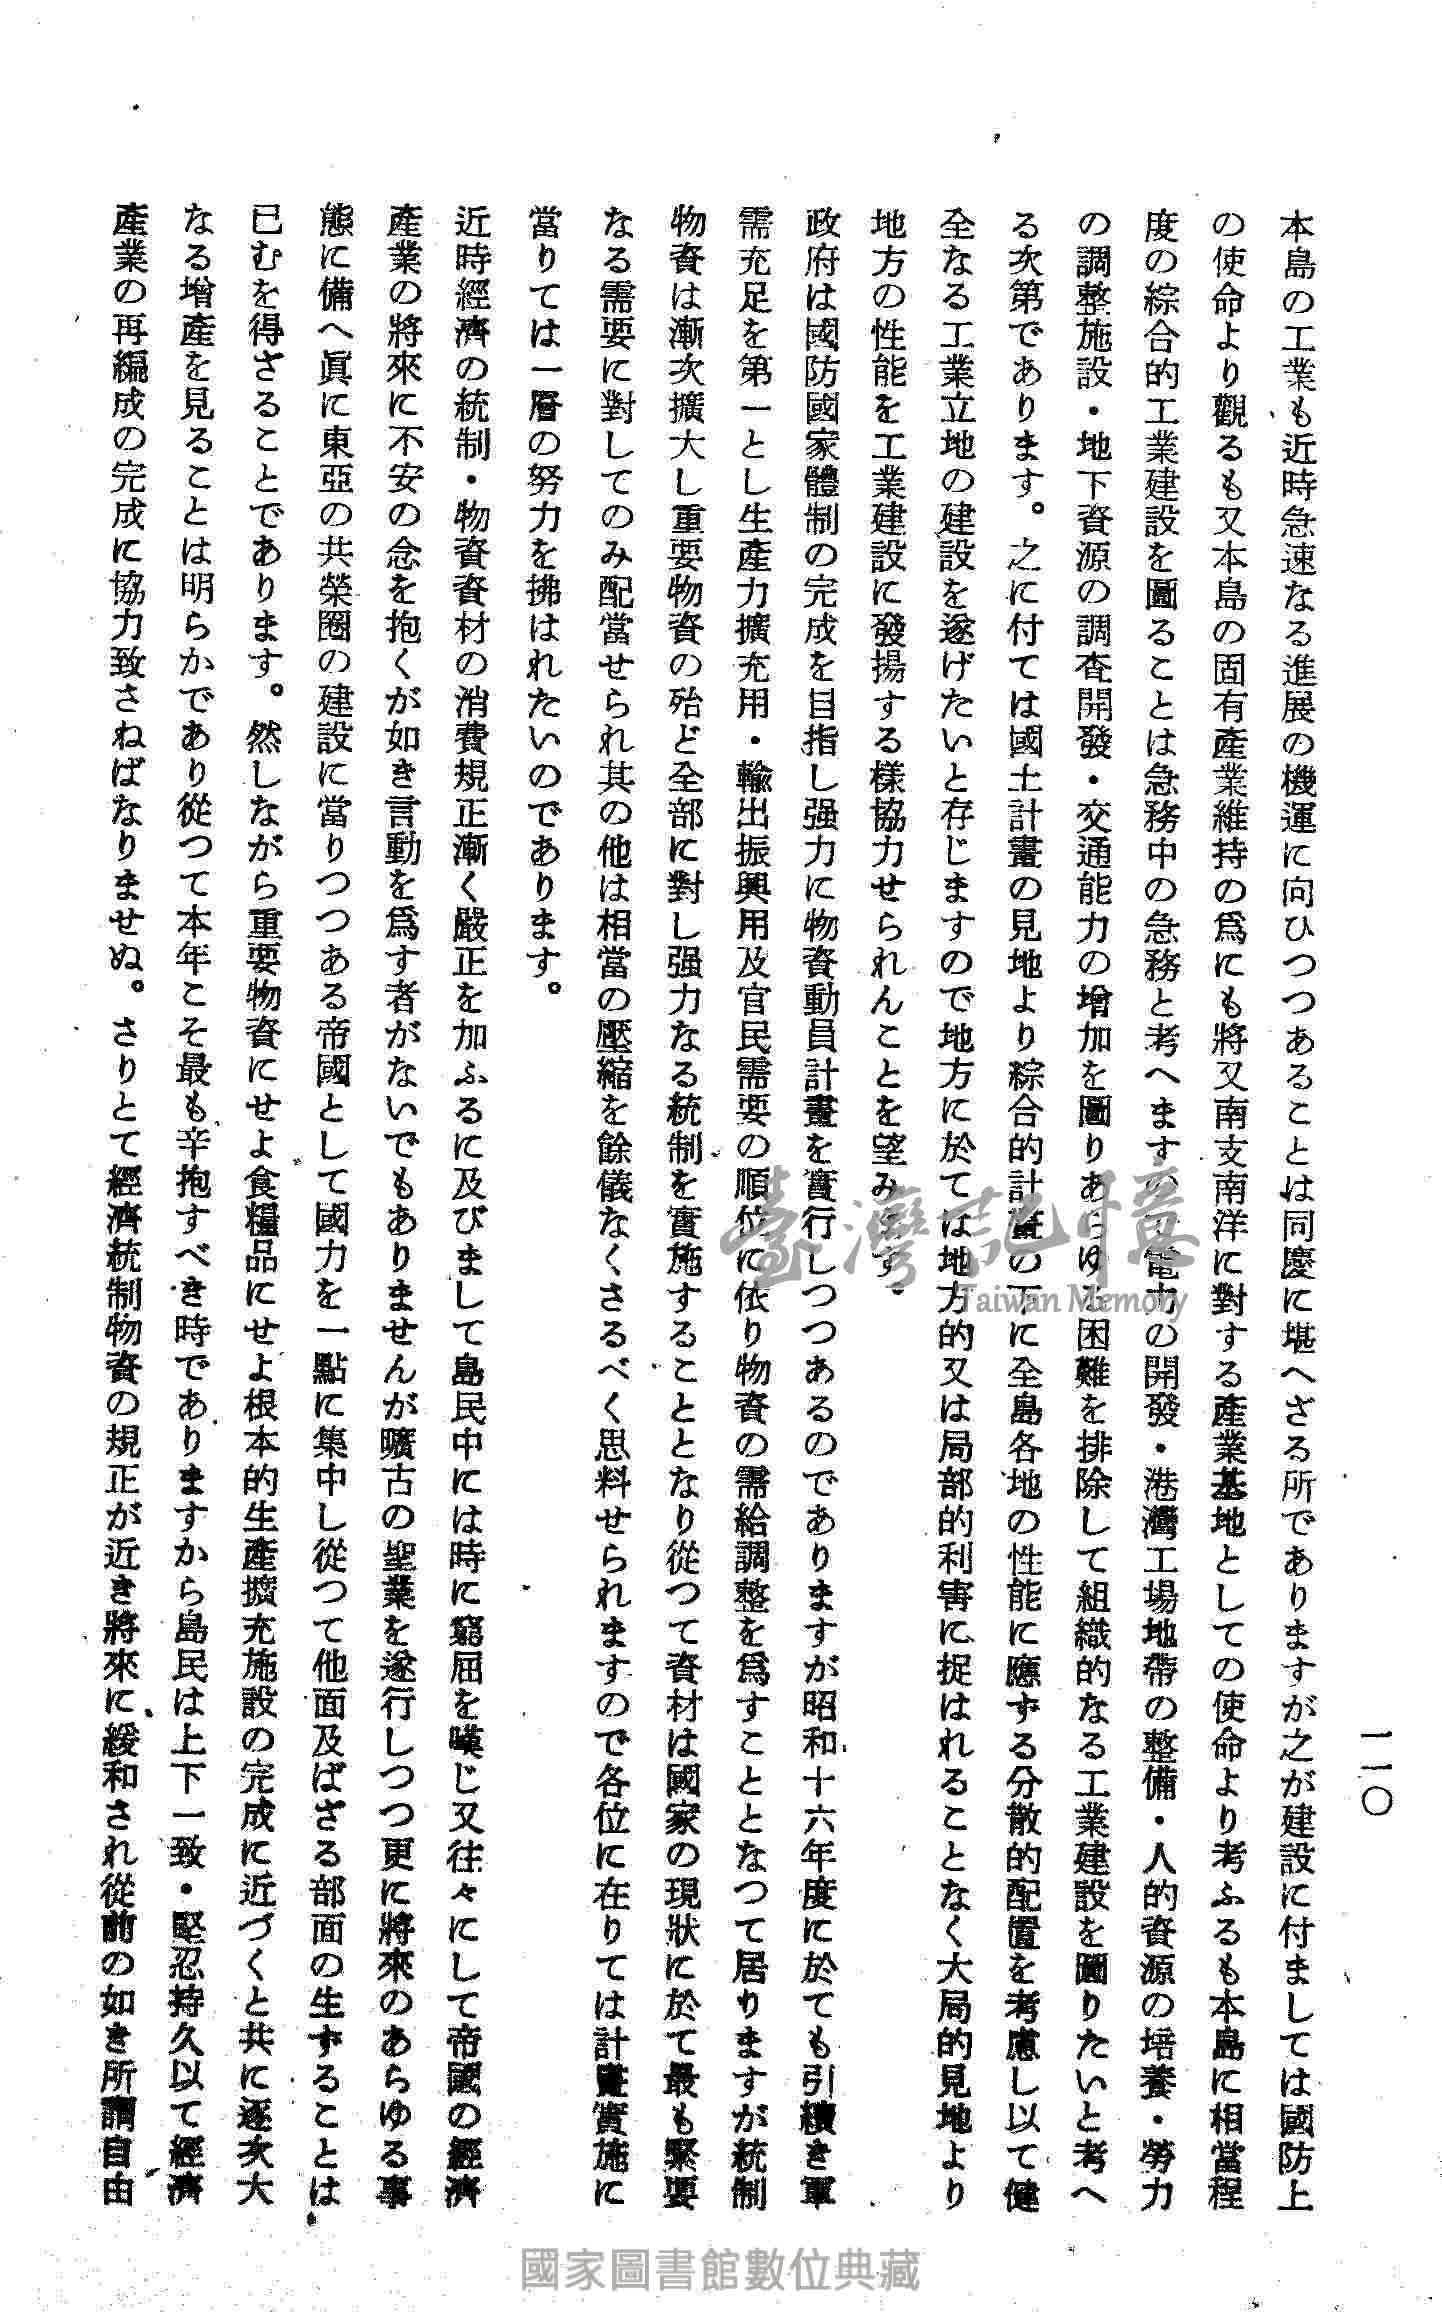 一一〇
本島の工業も近時急速なる進展の機運に向ひつつあることは同慶に堪へざる所でありますが之が建設に付ましては國防上
の使命より觀るも又本島の固有產業維持の爲にも將又南支南洋に對する產業基地としての使命より考ふるも本島に相當程
度の綜合的工業建設を圖ることは急務中の急務と考へますので電力の開發・港灣工場地帶の整備・人的資源の培養・勞力
の調整施設・地下資源の調査開發・交通能力の增加を圖りあらゆる困難を排除して組織的なる工業建設を圖りたいと考へ
る次第であります。之に付ては國土計畫の見地より綜合的計畫の下に全島各地の性能に應ずる分散的配置を考慮し以て健
全なる工業立地の建設を遂げたいと存じますので地方に於ては地方的又は局部的利害に捉はれることなく大局的見地より
地方の性能を工業建設に發揚する樣協力せられんことを望みます・
政府は國防國家體制の完成を目指し强力に物資動員計畫を實行しつつあるのでありますが昭和十六年度に於ても引續き軍
需充足を第一とし生產力擴充用・輸出振興用及官民需要の順位に依り物資の需給調整を爲すこととなつて居りますが統制
物資は漸次擴大し重要物資の殆ど全部に對し强力なる統制を實施することとなり從つて資材は國家の現狀に於て最も緊要
なる需要に對してのみ配當せられ其の他は相當の壓縮を餘儀なくさるべく思料せられますので各位に在りては計畫實施に
當りては一層の努力を拂はれたいのであります。
近時經濟の統制・物資資材の消費規正漸く嚴正を加ふるに及びまして島民中には時に窮屈を嘆じ又往々にして帝國の經濟
產業の將來に不安の念を抱くが如き言動を爲す者がないでもありませんが曠古の聖業を遂行しつつ更に將來のあらゆる事
態に備へ眞に東亞の共榮圈の建設に當りつつある帝國として國力を一點に集中し從つて他面及ばざる部面の生ずることは
已むを得ざることであります。然しながら重要物資にせよ食糧品にせよ根本的生產擴充施設の完成に近づくと共に逐次大
なる增產を見ることは明らかであり從つて本年こそ最も辛抱すべき時でありますから島民は上下一致・堅忍持久以て經濟
產業の再編成の完成に協力致さねばなりませぬ。さりとて經濟統制物資の規正が近き將來に緩和され從前の如き所謂自由
臺灣記憶
Taiwan Memory
國家圖書館數位典藏